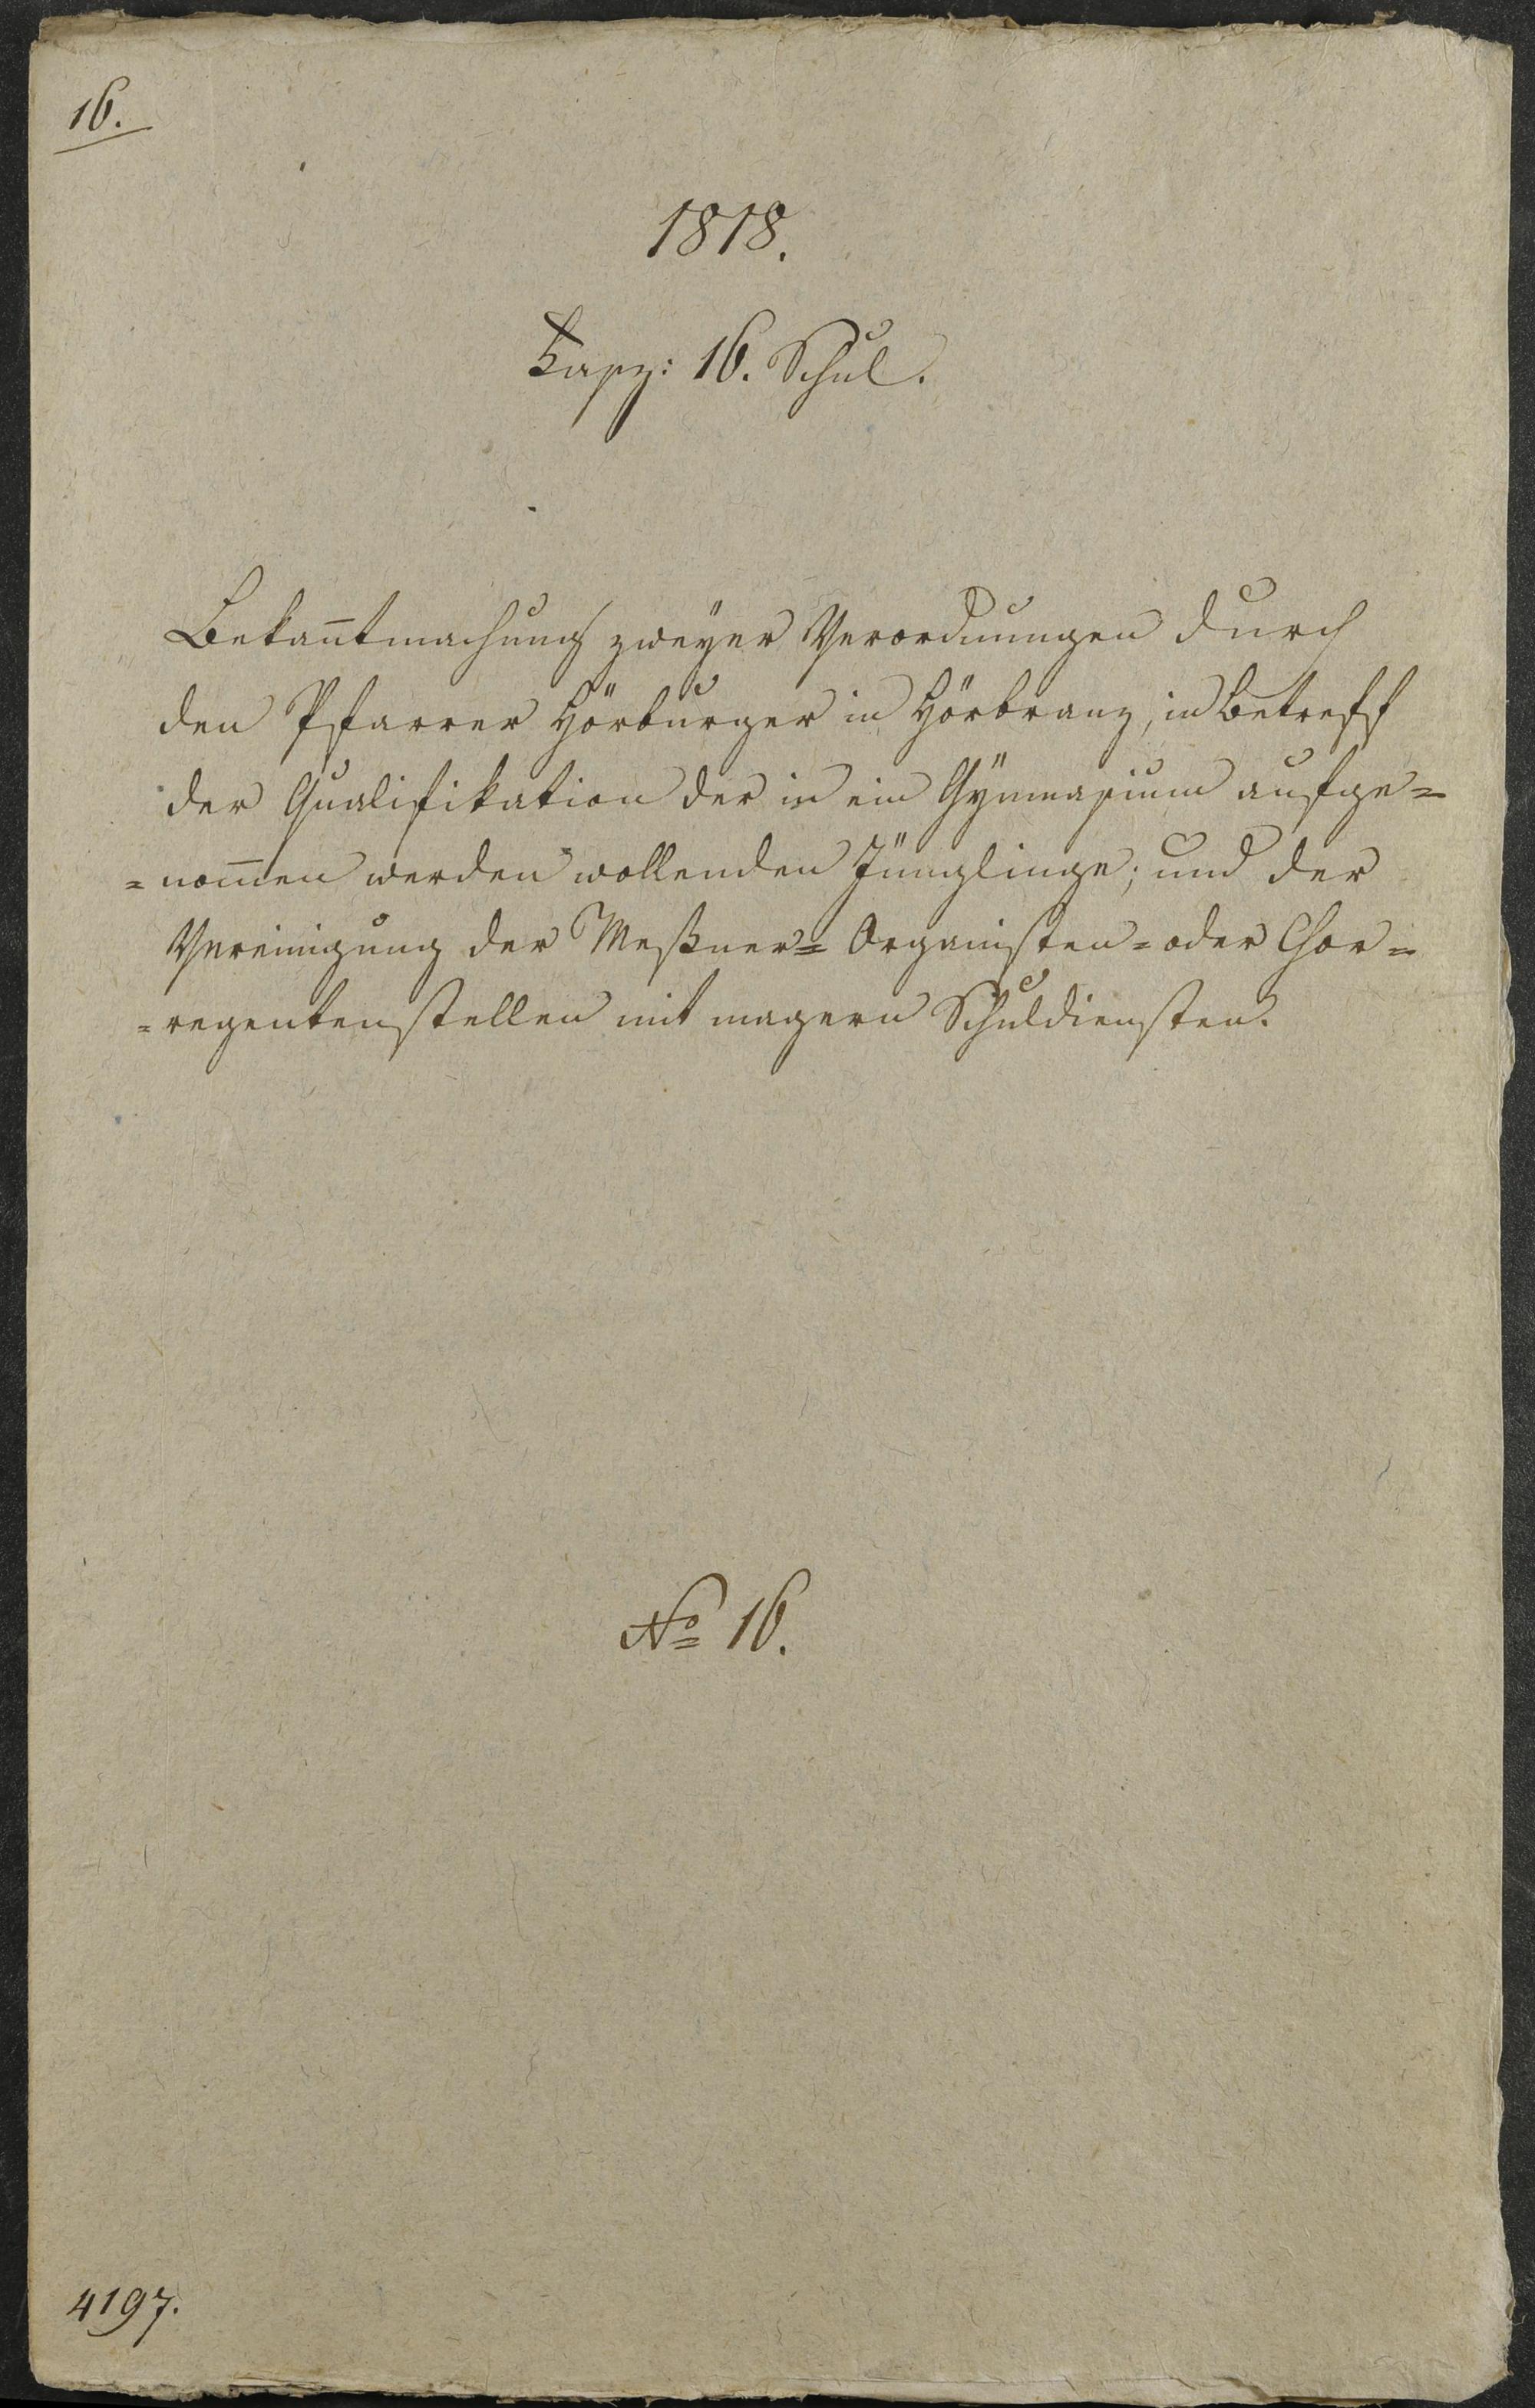 16.
1818.
Fasz: 16. Schul.
Bekan̄tmachung zweyer Verordnungen durch
den Pfarrer Hörburger in Hörbranz, in Betreff
der Qualifikation der in ein Gÿmnasium aufge=
=nom̄en werden wollenden Jünglinge; und der
Vereinigung der Meßner= Organisten= oder Chor=
=regentenstellen mit magern Schuldiensten.
No 16.
4197.